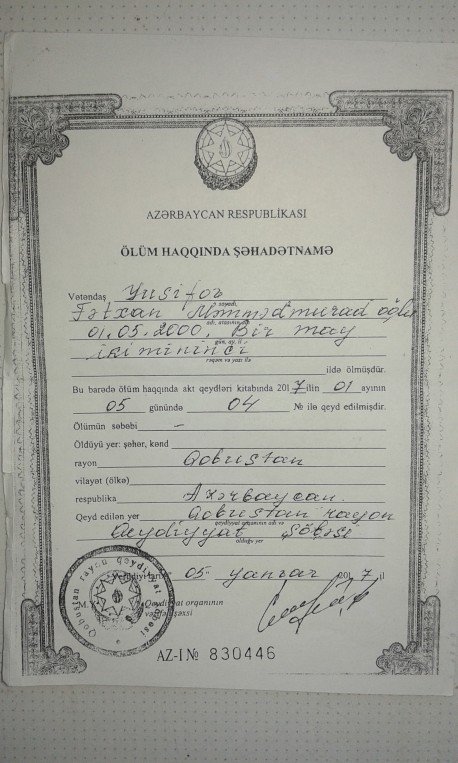 AZƏRBAYCAN RESPUBLİKASI
ÖLÜM HAQQINDA ŞƏHADƏTNAMƏ
Vətəndaş Yusifov
soyadı,
Fətxan Məmmədmurad oğlu
adı, atasının adı
01.05.2000, Bir may
gün, ay, il
iki mininci
rəqəm və yazı ilə
ildə ölmüşdür.
Bu barədə ölüm haqqında akt qeydləri kitabında 2017 ilin 01 ayının
05 günündə 04 № ilə qeyd edilmişdir.
Ölümün səbəbi -
Öldüyü yer: şəhər, kənd
rayon Qobustan
vilayət (ölkə)
respublika Azərbaycan.
Qeyd edilən yer Qobustan rayon
qeydiyyat orqanının adı və
Qeydiyyat Şöbəsi
olduğu yer
05 yanvar 2017 il
M.Y. Qeydiyyat orqanının
vəzifəli şəxsi
Qobustan rayon qeydiyyat şöbəsi
AZ-I № 830446